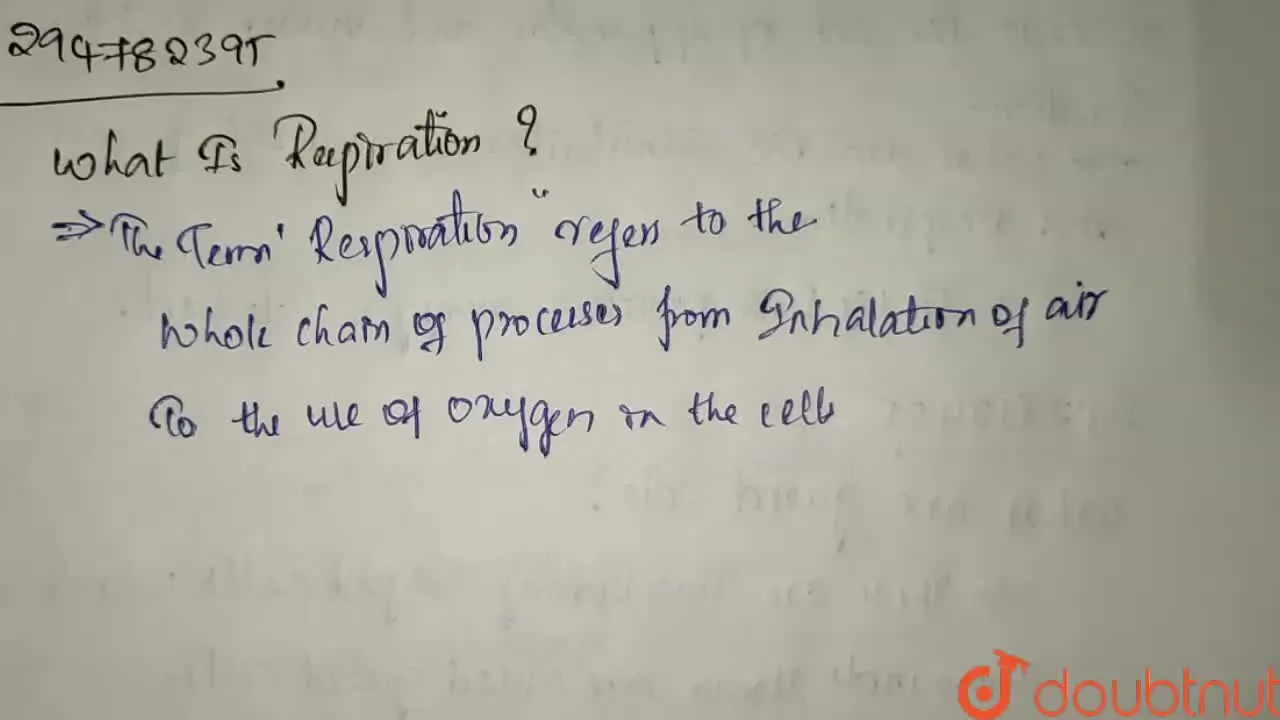 294782395
What Is Respiration ?
⇒ The Term' Respiration" refers to the
whole chain of processes from Inhalation of air
To the use of oxygen in the cells
doubtnut